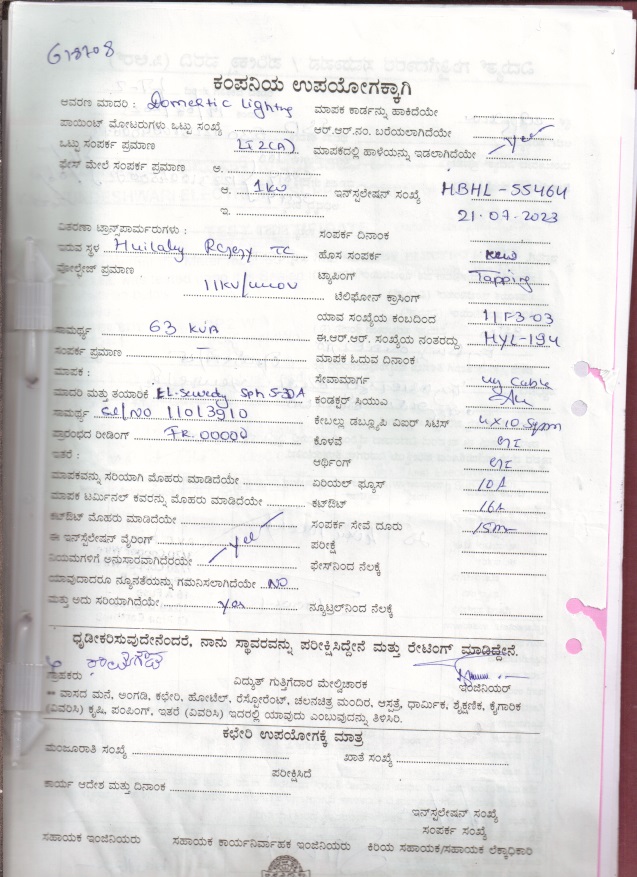 613708
ಕಂಪನಿಯ ಉಪಯೋಗಕ್ಕಾಗಿ
ಆವರಣ ಮಾದರಿ : Domestic Lighting ಮಾಪಕ ಕಾರ್ಡನ್ನು ಹಾಕಿದೆಯೇ
ಪಾಯಿಂಟ್ ಮೋಟರುಗಳು ಒಟ್ಟು ಸಂಖ್ಯೆ ಆರ್.ಆರ್.ನಂ. ಬರೆಯಲಾಗಿದೆಯೇ
ಒಟ್ಟು ಸಂಪರ್ಕ ಪ್ರಮಾಣ LT2(A) ಮಾಪಕದಲ್ಲಿ ಹಾಳೆಯನ್ನು ಇಡಲಾಗಿದೆಯೇ yes
ಫೇಸ್ ಮೇಲೆ ಸಂಪರ್ಕ ಪ್ರಮಾಣ ಅ.
ಆ. 1KW ಇನ್‌ಸ್ಟಲೇಷನ್ ಸಂಖ್ಯೆ HBHL-55464
ಇ. 21.07.2023
ವಿತರಣಾ ಟ್ರಾನ್ಸ್‌ಪಾರ್ಮರುಗಳು : ಸಂಪರ್ಕ ದಿನಾಂಕ
ಇರುವ ಸ್ಥಳ TC ಹೊಸ ಸಂಪರ್ಕ New
ವೋಲ್ಟೇಜ್ ಪ್ರಮಾಣ ಟ್ಯಾಪಿಂಗ್ Tapping
11KV/440V ಟೆಲಿಫೋನ್ ಕ್ರಾಸಿಂಗ್
ಯಾವ ಸಂಖ್ಯೆಯ ಕಂಬದಿಂದ 11F3-03
ಸಾಮರ್ಥ್ಯ 63 KVA ಈ.ಆರ್.ಆರ್. ಸಂಖ್ಯೆಯ ನಂತರದ್ದು HYL-194
ಸಂಪರ್ಕ ಪ್ರಮಾಣ – ಮಾಪಕ ಓದುವ ದಿನಾಂಕ
ಮಾಪಕ : ಸೇವಾಮಾರ್ಗ ug cable
ಮಾದರಿ ಮತ್ತು ತಯಾರಿಕೆ EL-Sewedy Sph 5-30A ಕಂಡಕ್ಟರ್ ಸಿಯುಎ
ಸಾಮರ್ಥ್ಯ Sl/NO 11013910 ಕೇಬಲ್ಲು ಡಬ್ಲ್ಯೂಪಿ ವಿಐರ್ ಸಿಟಿಸ್ 4x10 Sqmm
ಪ್ರಾರಂಭದ ರೀಡಿಂಗ್ FR. 00000 ಕೊಳವೆ GI
ಇತರೆ : ಆರ್ಥಿಂಗ್ GI
ಮಾಪಕವನ್ನು ಸರಿಯಾಗಿ ಮೊಹರು ಮಾಡಿದೆಯೇ ಏರಿಯಲ್ ಫ್ಯೂಸ್ 10A
ಮಾಪಕ ಟರ್ಮಿನಲ್ ಕವರನ್ನು ಮೊಹರು ಮಾಡಿದೆಯೇ ಕಟ್‌ಔಟ್ 16A
ಕಟ್‌ಔಟ್ ಮೊಹರು ಮಾಡಿದೆಯೇ ಸಂಪರ್ಕ ಸೇವೆ ದೂರು 15m
ಈ ಇನ್‌ಸ್ಟಲೇಷನ್ ವೈರಿಂಗ್ yes ಪರೀಕ್ಷೆ
ನಿಯಮಗಳಿಗೆ ಅನುಸಾರವಾಗಿದೆಯೇ ಫೇಸ್‌ನಿಂದ ನೆಲಕ್ಕೆ
ಯಾವುದಾದರೂ ನ್ಯೂನತೆಯನ್ನು ಗಮನಿಸಲಾಗಿದೆಯೇ NO
ಮತ್ತು ಅದು ಸರಿಯಾಗಿದೆಯೇ yes ನ್ಯೂಟ್ರಲ್‌ನಿಂದ ನೆಲಕ್ಕೆ
ಧೃಡೀಕರಿಸುವುದೇನೆಂದರೆ, ನಾನು ಸ್ಥಾವರವನ್ನು ಪರೀಕ್ಷಿಸಿದ್ದೇನೆ ಮತ್ತು ರೇಟಿಂಗ್ ಮಾಡಿದ್ದೇನೆ.
ಗ್ರಾಹಕರು ವಿದ್ಯುತ್ ಗುತ್ತಿಗೆದಾರ ಮೇಲ್ವಿಚಾರಕ ಇಂಜಿನಿಯರ್
** ವಾಸದ ಮನೆ, ಅಂಗಡಿ, ಕಛೇರಿ, ಹೋಟೆಲ್, ರೆಸ್ಟೋರೆಂಟ್, ಚಲನಚಿತ್ರ ಮಂದಿರ, ಆಸ್ಪತ್ರೆ, ಧಾರ್ಮಿಕ, ಶೈಕ್ಷಣಿಕ, ಕೈಗಾರಿಕ
(ವಿವರಿಸಿ) ಕೃಷಿ, ಪಂಪಿಂಗ್, ಇತರೆ (ವಿವರಿಸಿ) ಇದರಲ್ಲಿ ಯಾವುದು ಎಂಬುವುದನ್ನು ತಿಳಿಸಿರಿ.
ಕಛೇರಿ ಉಪಯೋಗಕ್ಕೆ ಮಾತ್ರ
ಮಂಜೂರಾತಿ ಸಂಖ್ಯೆ ಖಾತೆ ಸಂಖ್ಯೆ
ಪರೀಕ್ಷಿಸಿದೆ
ಕಾರ್ಯ ಆದೇಶ ಮತ್ತು ದಿನಾಂಕ
ಇನ್‌ಸ್ಟಲೇಷನ್ ಸಂಖ್ಯೆ
ಸಂಪರ್ಕ ಸಂಖ್ಯೆ
ಸಹಾಯಕ ಇಂಜಿನಿಯರು ಸಹಾಯಕ ಕಾರ್ಯನಿರ್ವಾಹಕ ಇಂಜಿನಿಯರು ಕಿರಿಯ ಸಹಾಯಕ/ಸಹಾಯಕ ಲೆಕ್ಕಾಧಿಕಾರಿ